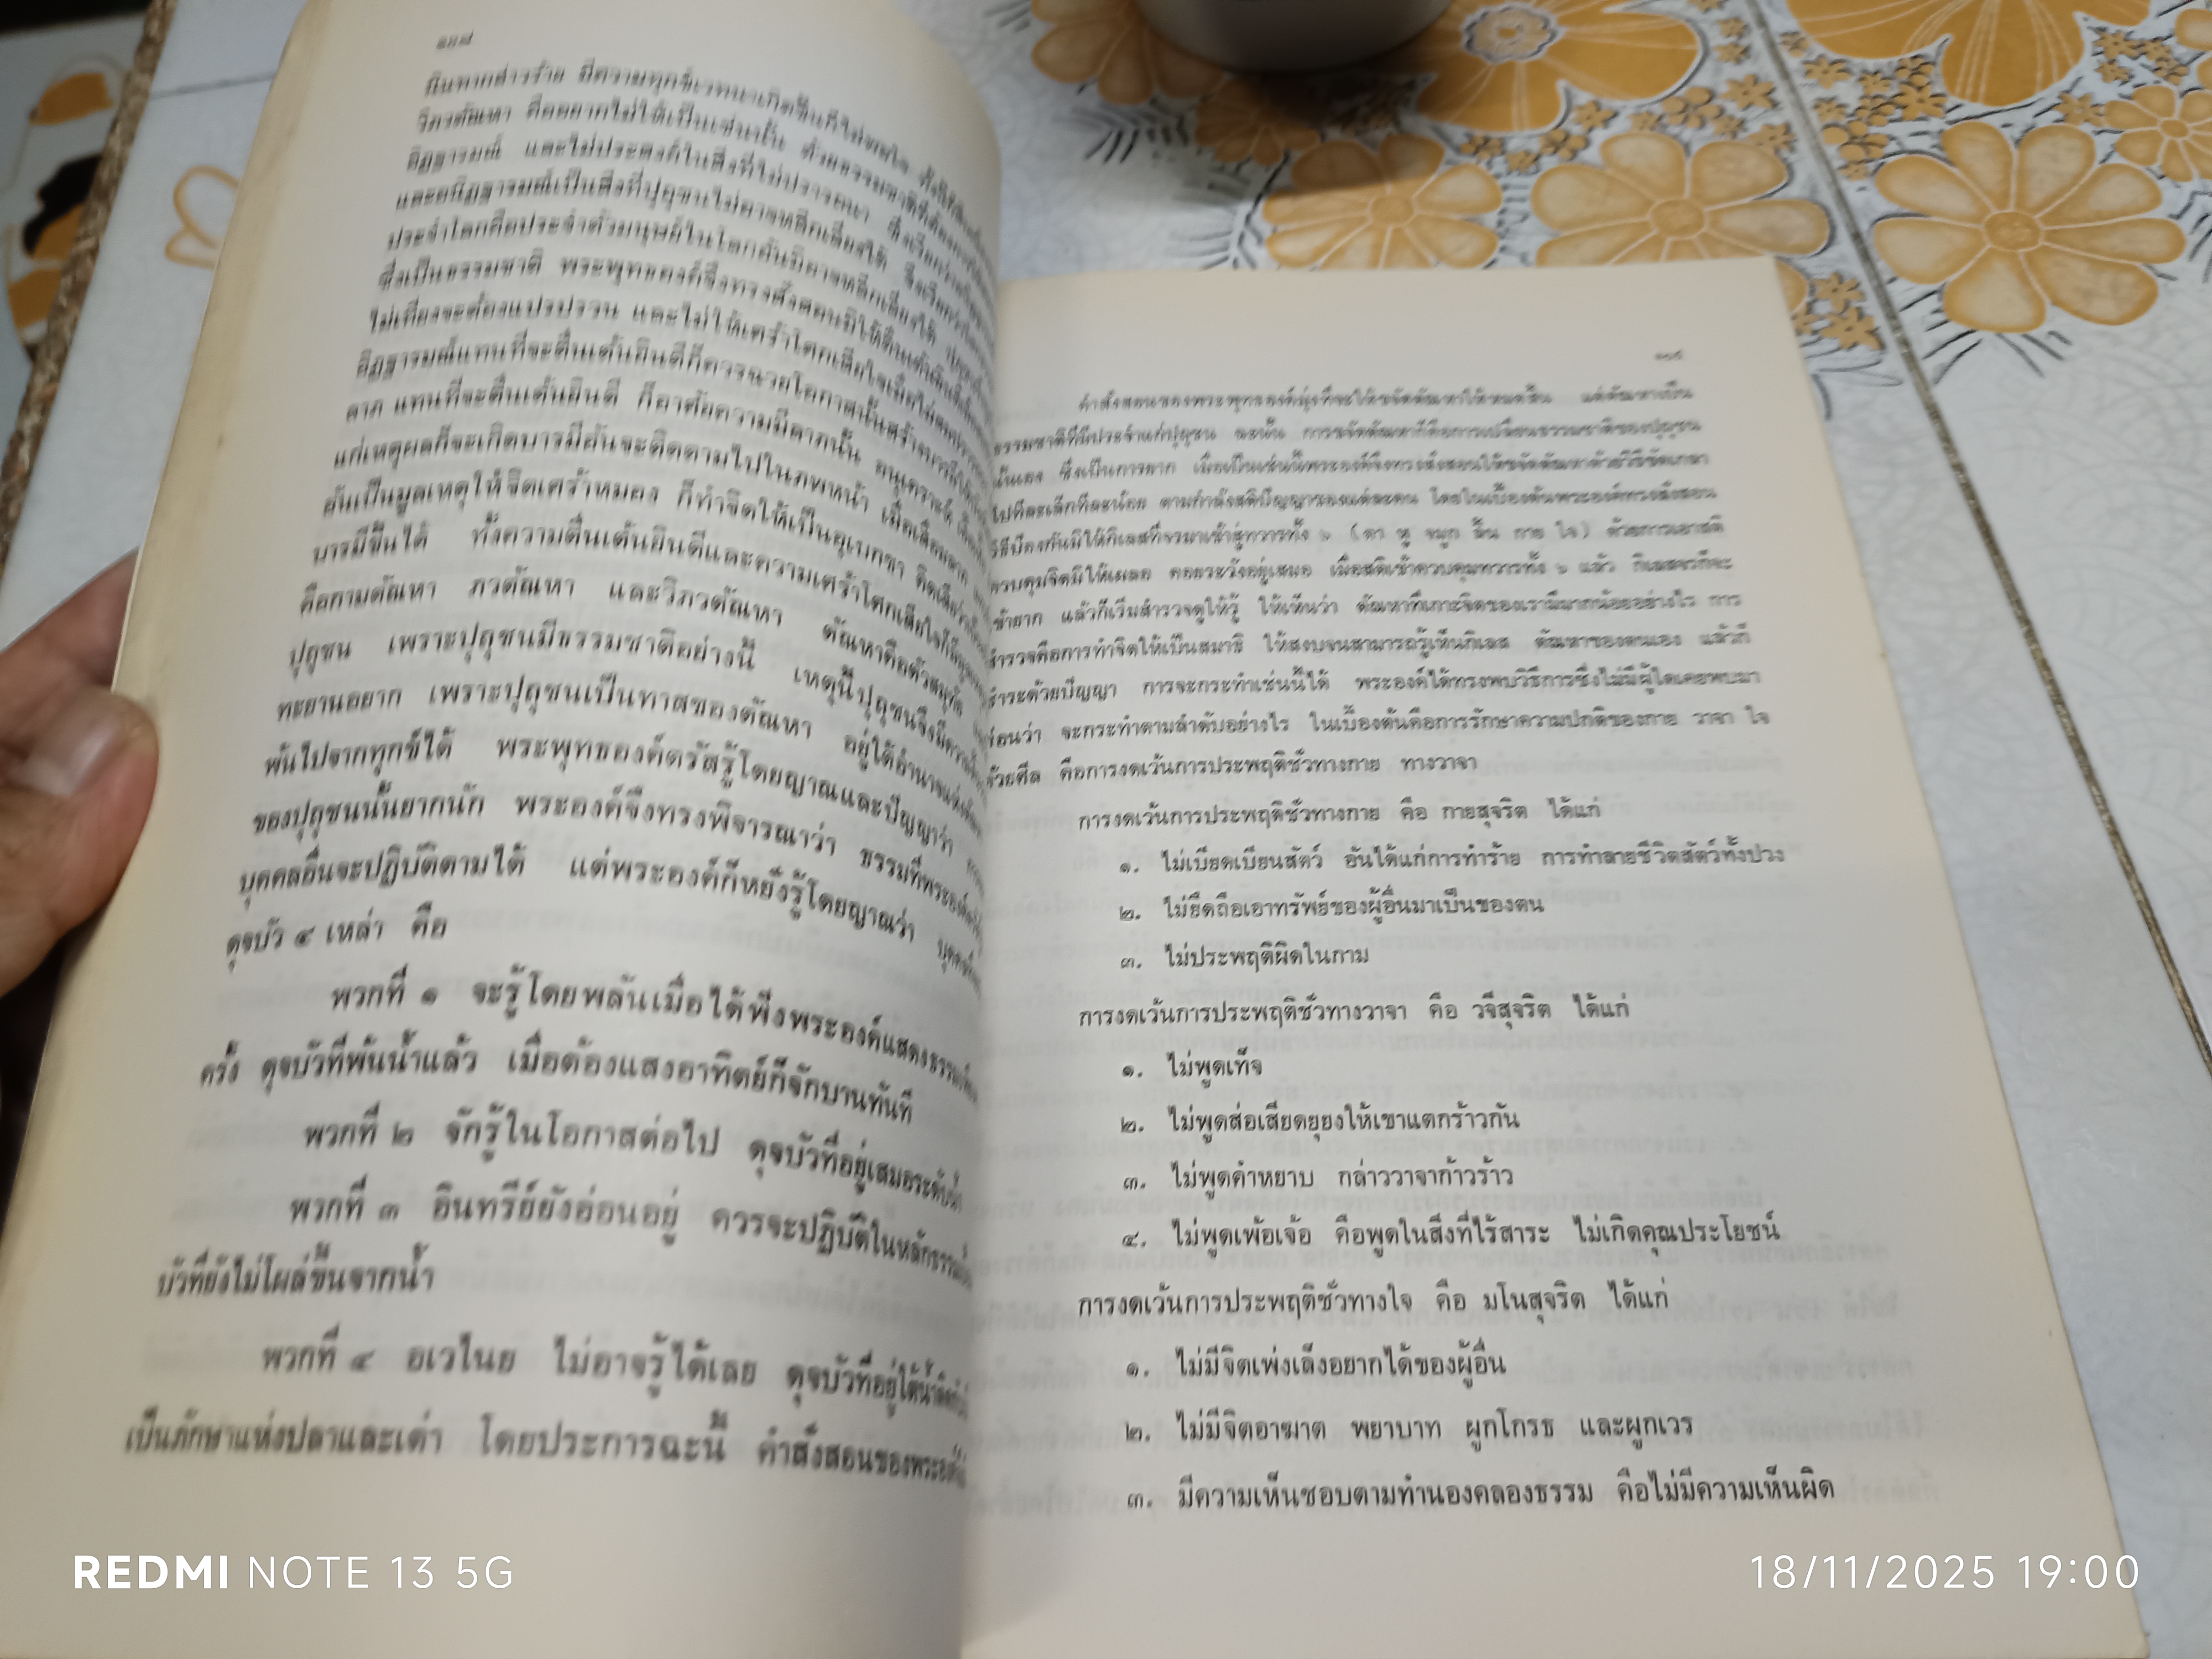 นินทากล่าวร้าย มีความทุกข์เวทนาเกิดขึ้นก็ไม่พอใจ
วิภวตัณหา คืออยากไม่ให้เป็นเช่นนั้น ด้วยธรรมชาติที่ต้องการ
อิฏฐารมณ์ และไม่ประสงค์ในสิ่งที่ไม่ปรารถนา ซึ่งเรียกว่า
และอนิฏฐารมณ์เป็นสิ่งที่ปุถุชนไม่อาจหลีกเลี่ยงได้ ซึ่งเรียกว่า
ประจำโลกคือประจำตัวมนุษย์ในโลกอันมิอาจหลีกเลี่ยงได้
ซึ่งเป็นธรรมชาติ พระพุทธองค์จึงทรงสั่งสอนมิให้ตื่นเต้น
ไม่เที่ยงจะต้องแปรปรวน และไม่ให้เศร้าโศกเสียใจเมื่อไม่สม
อิฏฐารมณ์แทนที่จะตื่นเต้นยินดีก็ควรฉวยโอกาสนั้นสร้างบารมีให้
ลาภ แทนที่จะตื่นเต้นยินดี ก็อาศัยความมีลาภนั้น อนุเคราะห์
แก่เหตุผลก็จะเกิดบารมีอันจะติดตามไปในภพหน้า เมื่อเสื่อมลาภ
อันเป็นมูลเหตุให้จิตเศร้าหมอง ก็ทำจิตให้เป็นอุเบกขา คิดเสียว่า
บารมีขึ้นได้ ทั้งความตื่นเต้นยินดีและความเศร้าโศกเสียใจก็
คือกามตัณหา ภวตัณหา และวิภวตัณหา ตัณหาคือตัวสมุทัย
ปุถุชน เพราะปุถุชนมีธรรมชาติอย่างนี้ เหตุนี้ปุถุชนจึงมีความ
ทะยานอยาก เพราะปุถุชนเป็นทาสของตัณหา อยู่ใต้อำนาจ
พ้นไปจากทุกข์ได้ พระพุทธองค์ตรัสรู้โดยญาณและปัญญาว่า
ของปุถุชนนั้นยากนัก พระองค์จึงทรงพิจารณาว่า ธรรมที่พระองค์
บุคคลอื่นจะปฏิบัติตามได้ แต่พระองค์ก็หยั่งรู้โดยญาณว่า
ดุจบัว ๔ เหล่า คือ
พวกที่ ๑ จะรู้โดยพลันเมื่อได้ฟังพระองค์แสดงธรรม
ครั้ง ดุจบัวที่พ้นน้ำแล้ว เมื่อต้องแสงอาทิตย์ก็จักบานทันที
พวกที่ ๒ จักรู้ในโอกาสต่อไป ดุจบัวที่อยู่เสมอระดับน้ำ
พวกที่ ๓ อินทรีย์ยังอ่อนอยู่ ควรจะปฏิบัติในหลักธรรม
บัวที่ยังไม่โผล่ขึ้นจากน้ำ
พวกที่ ๔ อเวไนย ไม่อาจรู้ได้เลย ดุจบัวที่อยู่ใต้น้ำ
เป็นภักษาแห่งปลาและเต่า โดยประการฉะนี้ คำสั่งสอนของพระองค์
คำสั่งสอนของพระพุทธองค์มุ่งที่จะให้ขจัดตัณหาให้หมดสิ้น แต่ตัณหาเป็น
ธรรมชาติที่มีประจำแก่ปุถุชน ฉะนั้น การขจัดตัณหาก็คือการเปลี่ยนธรรมชาติของปุถุชน
นั่นเอง ซึ่งเป็นการยาก เมื่อเป็นเช่นนี้พระองค์จึงทรงสั่งสอนให้ขจัดตัณหาด้วยวิธีขัดเกลา
ไปทีละเล็กทีละน้อย ตามกำลังสติปัญญาของแต่ละคน โดยในเบื้องต้นพระองค์ทรงสั่งสอน
วิธีป้องกันมิให้กิเลสที่จรมาเข้าสู่ทวารทั้ง ๖ (ตา หู จมูก ลิ้น กาย ใจ) ด้วยการเอาสติ
ควบคุมจิตมิให้เผลอ คอยระวังอยู่เสมอ เมื่อสติเข้าควบคุมทวารทั้ง ๖ แล้ว กิเลสจรก็จะ
เข้ายาก แล้วก็เริ่มสำรวจดูให้รู้ ให้เห็นว่า ตัณหาที่เกาะจิตของเรามีมากน้อยอย่างไร การ
สำรวจคือการทำจิตให้เป็นสมาธิ ให้สงบจนสามารถรู้เห็นกิเลส ตัณหาของตนเอง แล้วก็
ชำระด้วยปัญญา การจะกระทำเช่นนี้ได้ พระองค์ได้ทรงพบวิธีการซึ่งไม่มีผู้ใดเคยพบมา
ก่อนว่า จะกระทำตามลำดับอย่างไร ในเบื้องต้นคือการรักษาความปกติของกาย วาจา ใจ
ด้วยศีล คือการงดเว้นการประพฤติชั่วทางกาย ทางวาจา
การงดเว้นการประพฤติชั่วทางกาย คือ กายสุจริต ได้แก่
๑. ไม่เบียดเบียนสัตว์ อันได้แก่การทำร้าย การทำลายชีวิตสัตว์ทั้งปวง
๒. ไม่ยึดถือเอาทรัพย์ของผู้อื่นมาเป็นของตน
๓. ไม่ประพฤติผิดในกาม
การงดเว้นการประพฤติชั่วทางวาจา คือ วจีสุจริต ได้แก่
๑. ไม่พูดเท็จ
๒. ไม่พูดส่อเสียดยุยงให้เขาแตกร้าวกัน
๓. ไม่พูดคำหยาบ กล่าววาจาก้าวร้าว
๔. ไม่พูดเพ้อเจ้อ คือพูดในสิ่งที่ไร้สาระ ไม่เกิดคุณประโยชน์
การงดเว้นการประพฤติชั่วทางใจ คือ มโนสุจริต ได้แก่
๑. ไม่มีจิตเพ่งเล็งอยากได้ของผู้อื่น
๒. ไม่มีจิตอาฆาต พยาบาท ผูกโกรธ และผูกเวร
๓. มีความเห็นชอบตามทำนองคลองธรรม คือไม่มีความเห็นผิด
REDMI NOTE 13 5G
18/11/2025 19:00